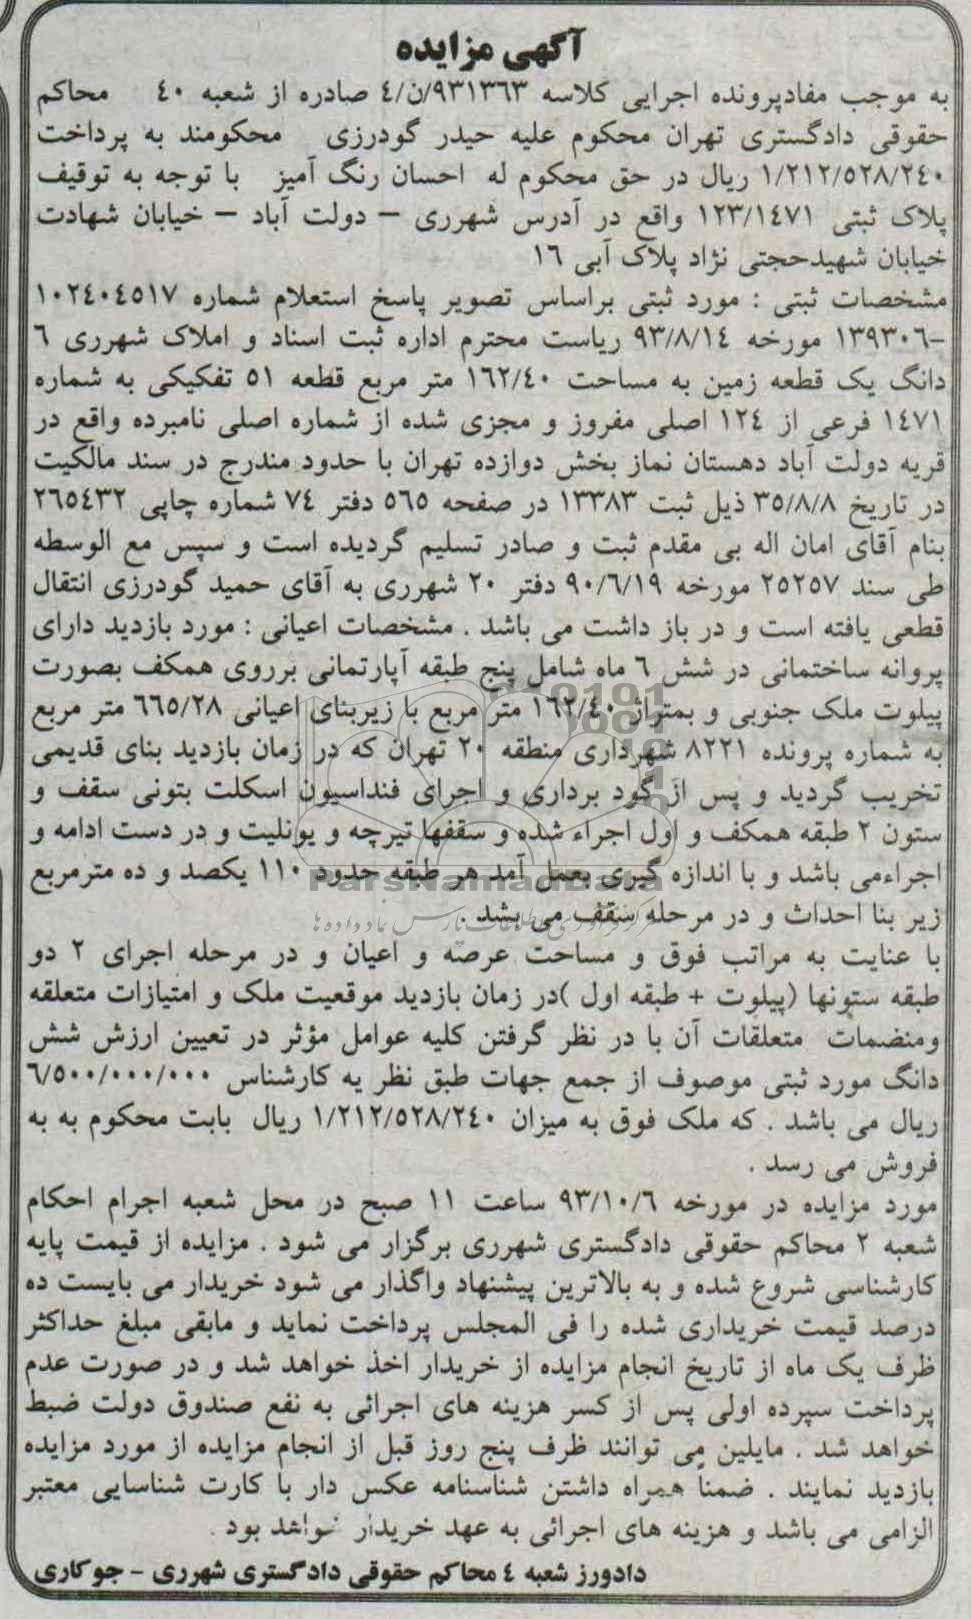 آگهی مزایده
به موجب مفادپرونده اجرایی کلاسه ۹۳۱۳٦۳/ن/٤ صادره از شعبه ٤۰ محاکم
حقوقی دادگستری تهران محکوم علیه حیدر گودرزی محکومند به پرداخت
۱/۲۱۲/٥۲۸/۲٤۰ ریال در حق محکوم له احسان رنگ آمیز با توجه به توقیف
پلاک ثبتی ۱۲۳/۱٤۷۱ واقع در آدرس شهرری – دولت آباد – خیابان شهادت
خیابان شهیدحجتی نژاد پلاک آبی ۱٦
مشخصات ثبتی : مورد ثبتی براساس تصویر پاسخ استعلام شماره ۱۰۲٤۰٤٥۱۷
-۱۳۹۳۰٦ مورخه ۹۳/۸/۱٤ ریاست محترم اداره ثبت اسناد و املاک شهرری ٦
دانگ یک قطعه زمین به مساحت ۱٦۲/٤۰ متر مربع قطعه ٥۱ تفکیکی به شماره
۱٤۷۱ فرعی از ۱۲٤ اصلی مفروز و مجزی شده از شماره اصلی نامبرده واقع در
قریه دولت آباد دهستان نماز بخش دوازده تهران با حدود مندرج در سند مالکیت
در تاریخ ۳٥/۸/۸ ذیل ثبت ۱۳۳۸۳ در صفحه ٥٦٥ دفتر ۷٤ شماره چاپی ۲٦٥٤۳۲
بنام آقای امان اله بی مقدم ثبت و صادر تسلیم گردیده است و سپس مع الوسطه
طی سند ۲٥۲٥۷ مورخه ۹۰/٦/۱۹ دفتر ۲۰ شهرری به آقای حمید گودرزی انتقال
قطعی یافته است و در باز داشت می باشد . مشخصات اعیانی : مورد بازدید دارای
پروانه ساختمانی در شش ٦ ماه شامل پنج طبقه آپارتمانی برروی همکف بصورت
پیلوت ملک جنوبی و بمتراژ ۱٦۲/٤۰ متر مربع با زیربنای اعیانی ٦٦٥/۲۸ متر مربع
به شماره پرونده ۸۲۲۱ شهرداری منطقه ۲۰ تهران که در زمان بازدید بنای قدیمی
تخریب گردید و پس از گود برداری و اجرای فنداسیون اسکلت بتونی سقف و
ستون ۲ طبقه همکف و اول اجراء شده و سقفها تیرچه و یونلیت و در دست ادامه و
اجراءمی باشد و با اندازه گیری بعمل آمد هر طبقه حدود ۱۱۰ یکصد و ده مترمربع
ParsNamadData
زیر بنا احداث و در مرحله سقف می بشد .
با عنایت به مراتب فوق و مساحت عرصه و اعیان و در مرحله اجرای ۲ دو
طبقه ستونها (پیلوت + طبقه اول )در زمان بازدید موقعیت ملک و امتیازات متعلقه
ومنضمات متعلقات آن با در نظر گرفتن کلیه عوامل مؤثر در تعیین ارزش شش
دانگ مورد ثبتی موصوف از جمع جهات طبق نظر یه کارشناس ٦/٥۰۰/۰۰۰/۰۰۰
ریال می باشد . که ملک فوق به میزان ۱/۲۱۲/٥۲۸/۲٤۰ ریال بابت محکوم به به
فروش می رسد .
مورد مزایده در مورخه ۹۳/۱۰/٦ ساعت ۱۱ صبح در محل شعبه اجرام احکام
شعبه ۲ محاکم حقوقی دادگستری شهرری برگزار می شود . مزایده از قیمت پایه
کارشناسی شروع شده و به بالاترین پیشنهاد واگذار می شود خریدار می بایست ده
درصد قیمت خریداری شده را فی المجلس پرداخت نماید و مابقی مبلغ حداکثر
ظرف یک ماه از تاریخ انجام مزایده از خریدار اخذ خواهد شد و در صورت عدم
پرداخت سپرده اولی پس از کسر هزینه های اجرائی به نفع صندوق دولت ضبط
خواهد شد . مایلین می توانند ظرف پنج روز قبل از انجام مزایده از مورد مزایده
بازدید نمایند . ضمناً همراه داشتن شناسنامه عکس دار با کارت شناسایی معتبر
الزامی می باشد و هزینه های اجرائی به عهد خریدار خواهد بود .
دادورز شعبه ٤ محاکم حقوقی دادگستری شهرری - جوکاری